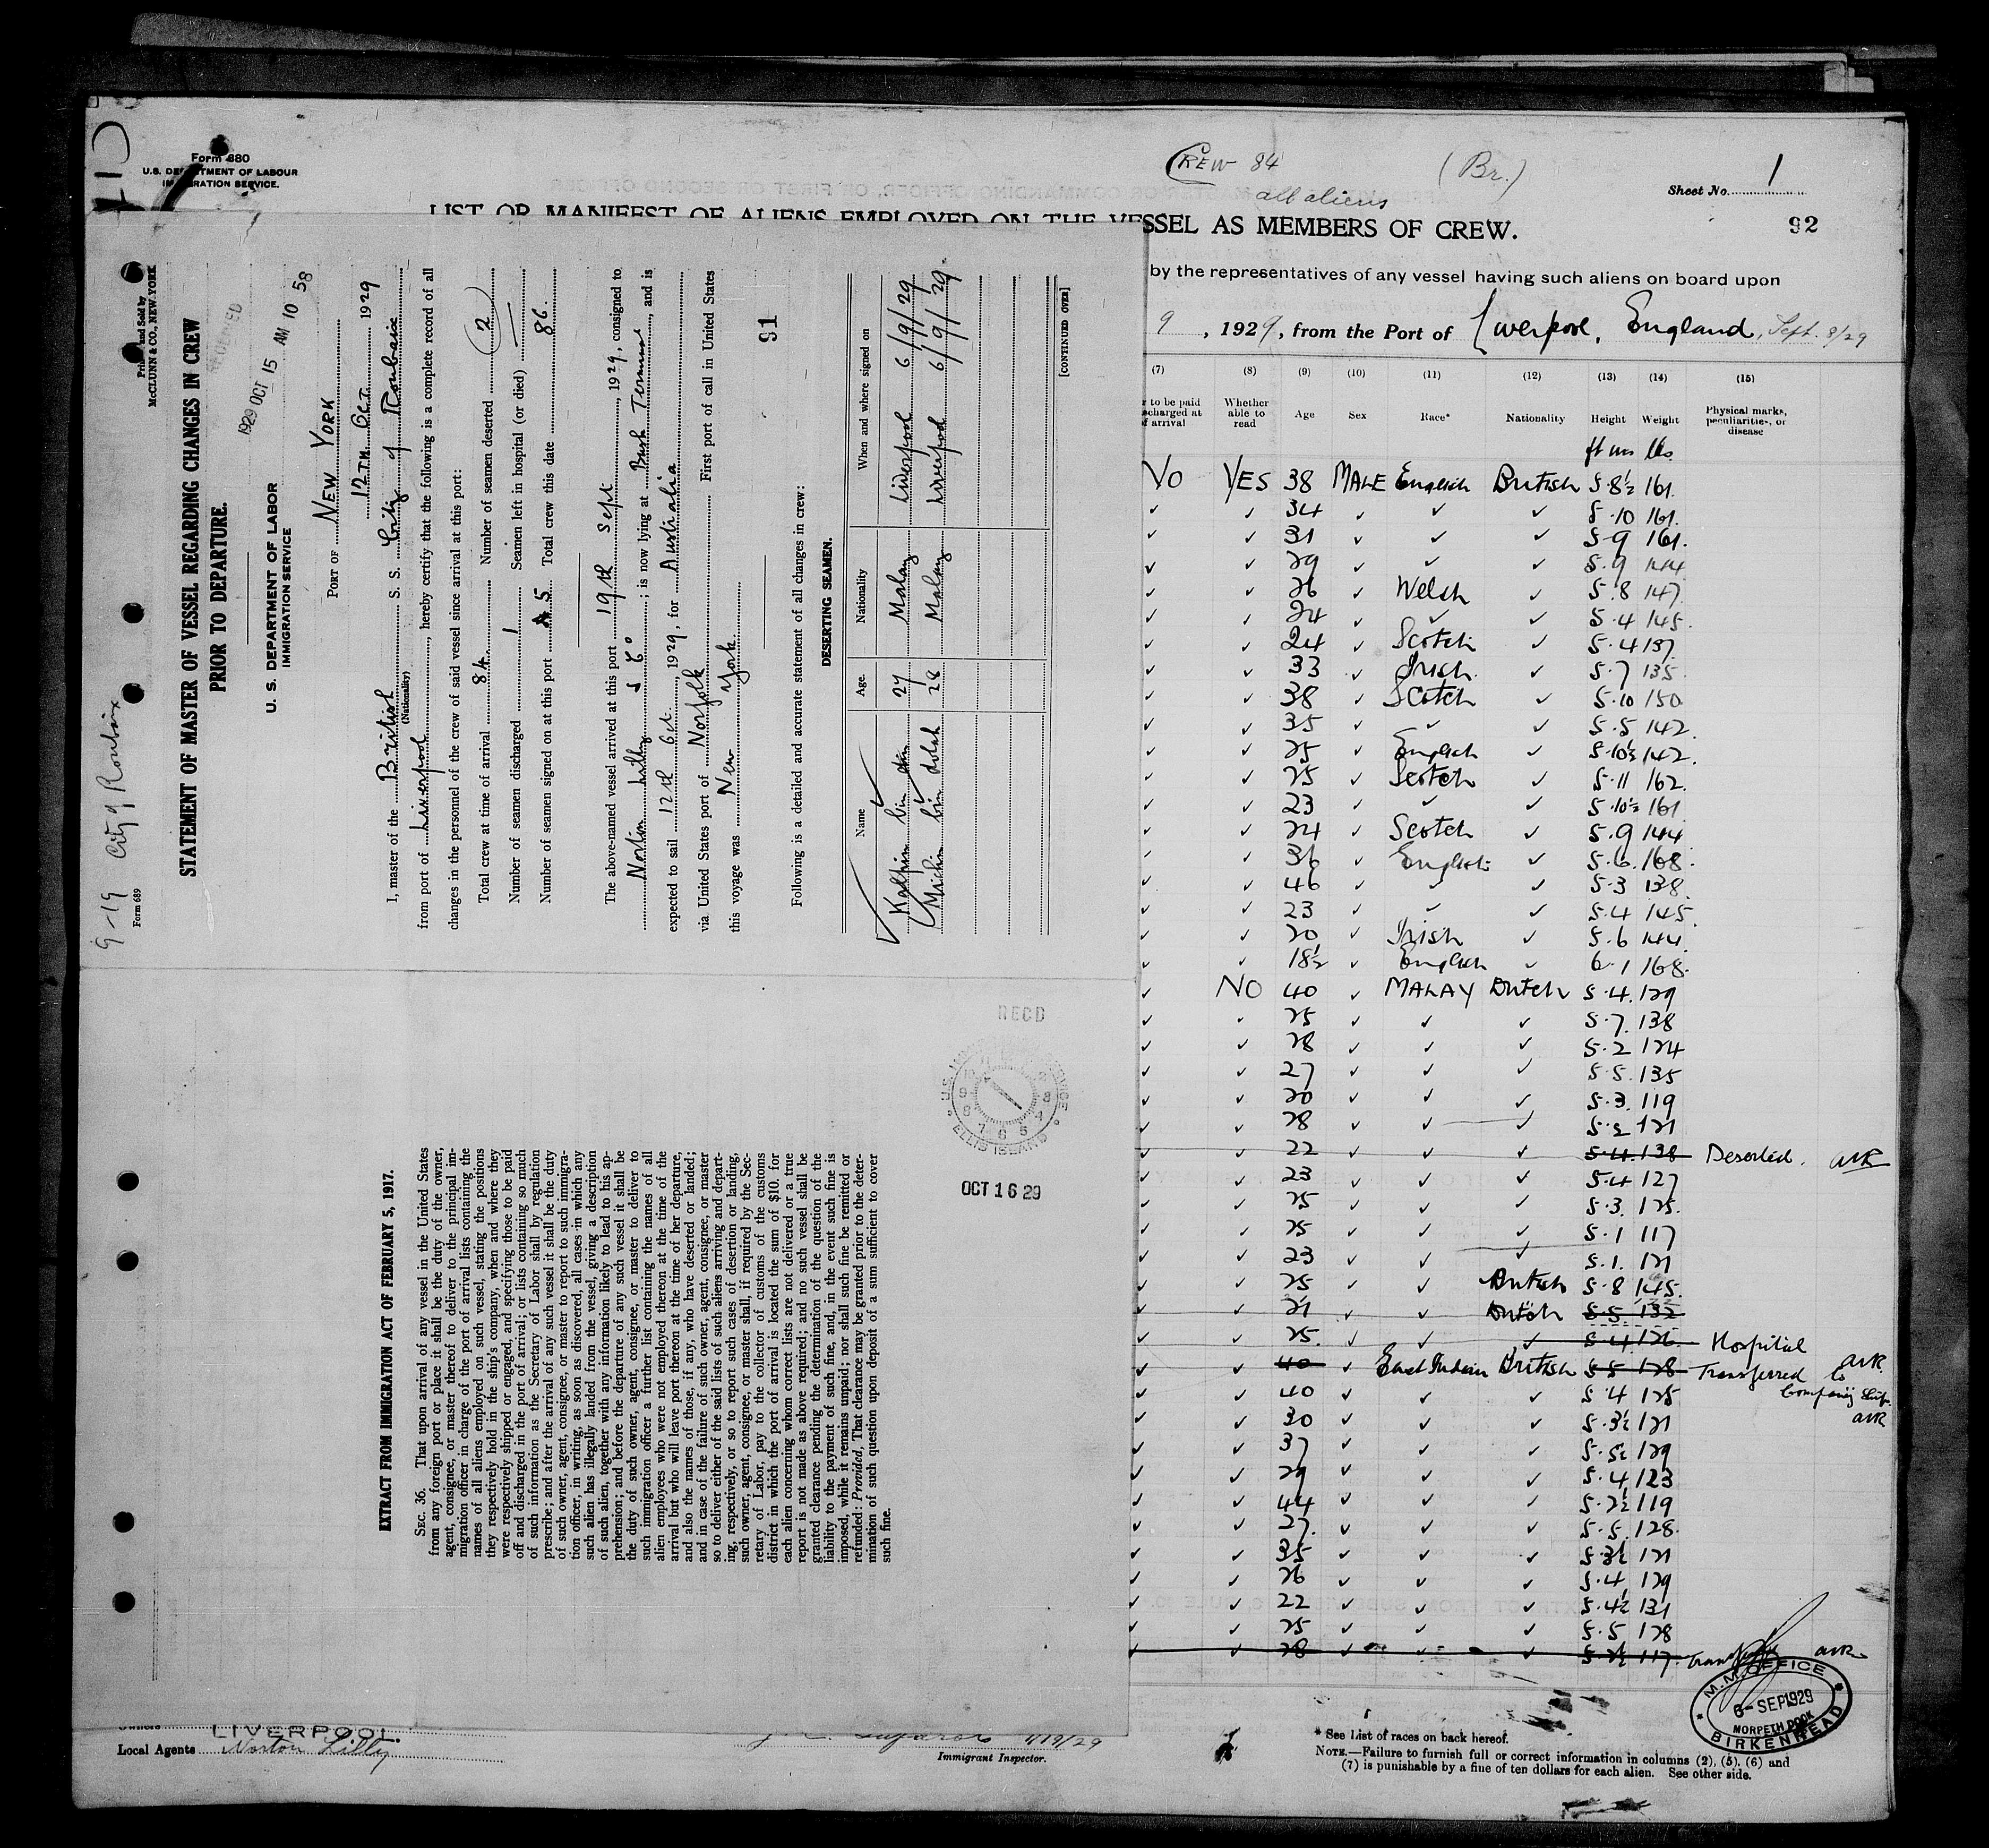 Form 680
U.S. DEPARTMENT OF LABOUR
IMMIGRATION SERVICE.
CREW 84
all aliens
(Br.)
Sheet No. 1
92
LIST OR MANIFEST OF ALIENS EMPLOYED ON THE VESSEL AS MEMBERS OF CREW.
by the representatives of any vessel having such aliens on board upon
9, 1929, from the Port of Liverpool, England, Sept. 8/29
(7) (8) (9) (10) (11) (12) (13) (14) (15)
to be paid
discharged at
arrival
Whether able to read
Age
Sex
Race*
Nationality
Height
Weight
Physical marks, peculiarities, or disease
ft ins lbs.
No YES 38 MALE English British 5·8½ 161.
✓ ✓ 34 ✓ ✓ ✓ 5·10 161.
✓ ✓ 31 ✓ ✓ ✓ 5·9 161.
✓ ✓ 29 ✓ ✓ ✓ 5·9 144
✓ ✓ 26 ✓ Welsh ✓ 5·8 147
✓ ✓ 24 ✓ ✓ ✓ 5·4 145.
✓ ✓ 24 ✓ Scotch ✓ 5·4 137
✓ ✓ 33 ✓ Irish ✓ 5·7 135.
✓ ✓ 38 ✓ Scotch ✓ 5·10 150
✓ ✓ 35 ✓ ✓ ✓ 5·5 142.
✓ ✓ 25 ✓ English ✓ 5·10½ 142.
✓ ✓ 25 ✓ Scotch ✓ 5·11 162.
✓ ✓ 23 ✓ ✓ ✓ 5·10½ 161
✓ ✓ 24 ✓ Scotch ✓ 5·9 144
✓ ✓ 36 ✓ English ✓ 5·6 168.
✓ ✓ 46 ✓ ✓ ✓ 5·3 138.
✓ ✓ 23 ✓ ✓ ✓ 5·4 145.
✓ ✓ 20 ✓ Irish ✓ 5·6 144.
✓ ✓ 18½ ✓ English ✓ 6·1 168.
✓ NO 40 ✓ MALAY Dutch 5·4. 129
✓ ✓ 25 ✓ ✓ ✓ 5·7. 138
✓ ✓ 28 ✓ ✓ ✓ 5·2 124
✓ ✓ 27 ✓ ✓ ✓ 5·5. 135
✓ ✓ 20 ✓ ✓ ✓ 5·3. 119
✓ ✓ 28 ✓ ✓ ✓ 5·2 121
✓ ✓ 22 ✓ ✓ ✓ 5·4. 138 Deserted.
✓ ✓ 23 ✓ ✓ ✓ 5·4 127
✓ ✓ 25 ✓ ✓ ✓ 5·3. 125.
✓ ✓ 25 ✓ ✓ ✓ 5·1 117
✓ ✓ 23 ✓ ✓ ✓ 5·1. 121
✓ ✓ 25 ✓ ✓ British 5·8 145.
✓ ✓ 21 ✓ ✓ Dutch 5·5 132
✓ ✓ 25. ✓ ✓ ✓ 5·4. 126 Hospital
✓ ✓ 40 ✓ East Indian British 5·5 128 Transferred to
✓ ✓ 40 ✓ ✓ ✓ 5·4 125 Company Ship.
✓ ✓ 30 ✓ ✓ ✓ 5·3½ 121
✓ ✓ 37 ✓ ✓ ✓ 5·5½ 129
✓ ✓ 29 ✓ ✓ ✓ 5·4 123
✓ ✓ 44 ✓ ✓ ✓ 5·2½ 119
✓ ✓ 27. ✓ ✓ ✓ 5·5. 128.
✓ ✓ 35 ✓ ✓ ✓ 5·3½ 121
✓ ✓ 26 ✓ ✓ ✓ 5·4 129
✓ ✓ 22 ✓ ✓ ✓ 5·4½ 131
✓ ✓ 25 ✓ ✓ ✓ 5·5 128
✓ ✓ 28 ✓ ✓ ✓ 5·2½ 117.
M.M. OFFICE
6 - SEP 1929
MORPETH DOCK
BIRKENHEAD
* See List of races on back hereof.
NOTE.—Failure to furnish full or correct information in columns (2), (5), (6) and
(7) is punishable by a fine of ten dollars for each alien. See other side.
Owners LIVERPOOL.
Local Agents Norton Lilly
Immigrant Inspector.
9-19 City of Roubaix
Form 689
Printed and Sold by
McCLUNN & CO., NEW YORK
STATEMENT OF MASTER OF VESSEL REGARDING CHANGES IN CREW
PRIOR TO DEPARTURE.
RECEIVED
1929 OCT 15 AM 10 58
U. S. DEPARTMENT OF LABOR
IMMIGRATION SERVICE
PORT OF NEW YORK
12TH Oct. 1929
I, master of the British S. S. City of Roubaix
(Nationality)
from port of Liverpool, hereby certify that the following is a complete record of all
changes in the personnel of the crew of said vessel since arrival at this port:
Total crew at time of arrival 84 Number of seamen deserted 2
Number of seamen discharged 1 Seamen left in hospital (or died)
Number of seamen signed on at this port 5 Total crew this date 86.
The above-named vessel arrived at this port 19th Sept, 1929, consigned to
Norton Lilly & Co; is now lying at Bush Terminal, and is
expected to sail 12th Oct., 1929, for Australia
via. United States port of Norfolk First port of call in United States
this voyage was New York
91
Following is a detailed and accurate statement of all changes in crew:
DESERTING SEAMEN.
Name Age. Nationality When and where signed on
bin 27 Malay Liverpool 6/9/29
bin 28 Malay Liverpool 6/9/29
[CONTINUED OVER]
RECD
ELLIS ISLAND
OCT 16 29
EXTRACT FROM IMMIGRATION ACT OF FEBRUARY 5, 1917.
SEC. 36. That upon arrival of any vessel in the United States
from any foreign port or place it shall be the duty of the owner,
agent, consignee, or master thereof to deliver to the principal im-
migration officer in charge of the port of arrival lists containing the
names of all aliens employed on such vessel, stating the positions
they respectively hold in the ship's company, when and where they
were respectively shipped or engaged, and specifying those to be paid
off and discharged in the port of arrival; or lists containing so much
of such information as the Secretary of Labor shall by regulation
prescribe; and after the arrival of any such vessel it shall be the duty
of such owner, agent, consignee, or master to report to such immigra-
tion officer, in writing, as soon as discovered, all cases in which any
such alien has illegally landed from the vessel, giving a description
of such alien, together with any information likely to lead to his ap-
prehension; and before the departure of any such vessel it shall be
the duty of such owner, agent, consignee, or master to deliver to
such immigration officer a further list containing the names of all
alien employees who were not employed thereon at the time of the
arrival but who will leave port thereon at the time of her departure,
and also the names of those, if any, who have deserted or landed;
and in case of the failure of such owner, agent, consignee, or master
so to deliver either of the said lists of such aliens arriving and depart-
ing, respectively, or so to report such cases of desertion or landing,
such owner, agent, consignee, or master shall, if required by the Sec-
retary of Labor, pay to the collector of customs of the customs
district in which the port of arrival is located the sum of $10. for
each alien concerning whom correct lists are not delivered or a true
report is not made as above required; and no such vessel shall be
granted clearance pending the determination of the question of the
liability to the payment of such fine, and, in the event such fine is
imposed, while it remains unpaid; nor shall such fine be remitted or
refunded: Provided, That clearance may be granted prior to the deter-
mination of such question upon deposit of a sum sufficient to cover
such fine.